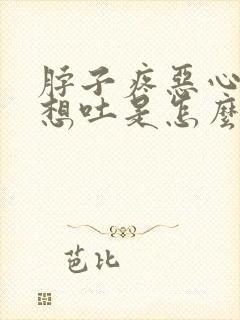 脖子疼惡心
想吐是怎麼
芭比